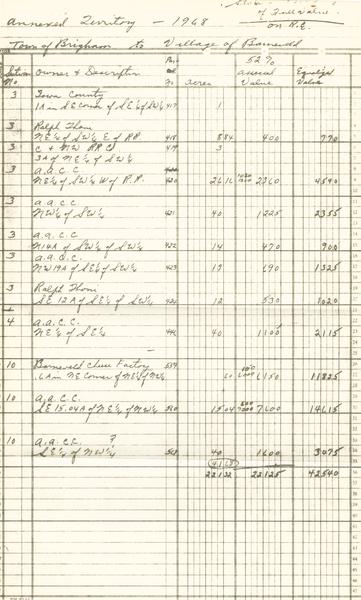 Annexed Territory - 1968
of Full Value
on R.E.
Town of Brigham to Village of Barneveld
52%
Section No. Owner & Description No Acres Value Equalized Value
3 Iowa County
1A in SE Corner of SE¼ of SW¼ 417 1
3 Ralph Thom
NE¼ of SW¼ E of RR 418 8.84 400 770
3 C + NW RR Co 419 3
3A of NE¼ of SW¼
3 A.A.C.C.
NE¼ of SW¼ W of R.R. 420 26.16 2360 4540
3 A.A.C.C.
NW¼ of SW¼ 421 40 1225 2355
3 A.A.C.C.
N14A of SW¼ of SW¼ 422 14 470 900
3 A.A.C.C.
NW19A of SE¼ of SW¼ 423 19 690 1325
3 Ralph Thom
SE 12A of SE¼ of SW¼ 424 12 530 1020
4 A.A.C.C.
NE¼ of SE¼ 446 40 1100 2115
10 Barneveld Cheese Factory 559
6150 11825
10 A.A.C.C.
SE 15.04A of NE¼ of NW¼ 560 15.04 7600 14615
10 A.A.C.C. ?
SE¼ of NW¼ 563 40 1600 3075
22125 42540